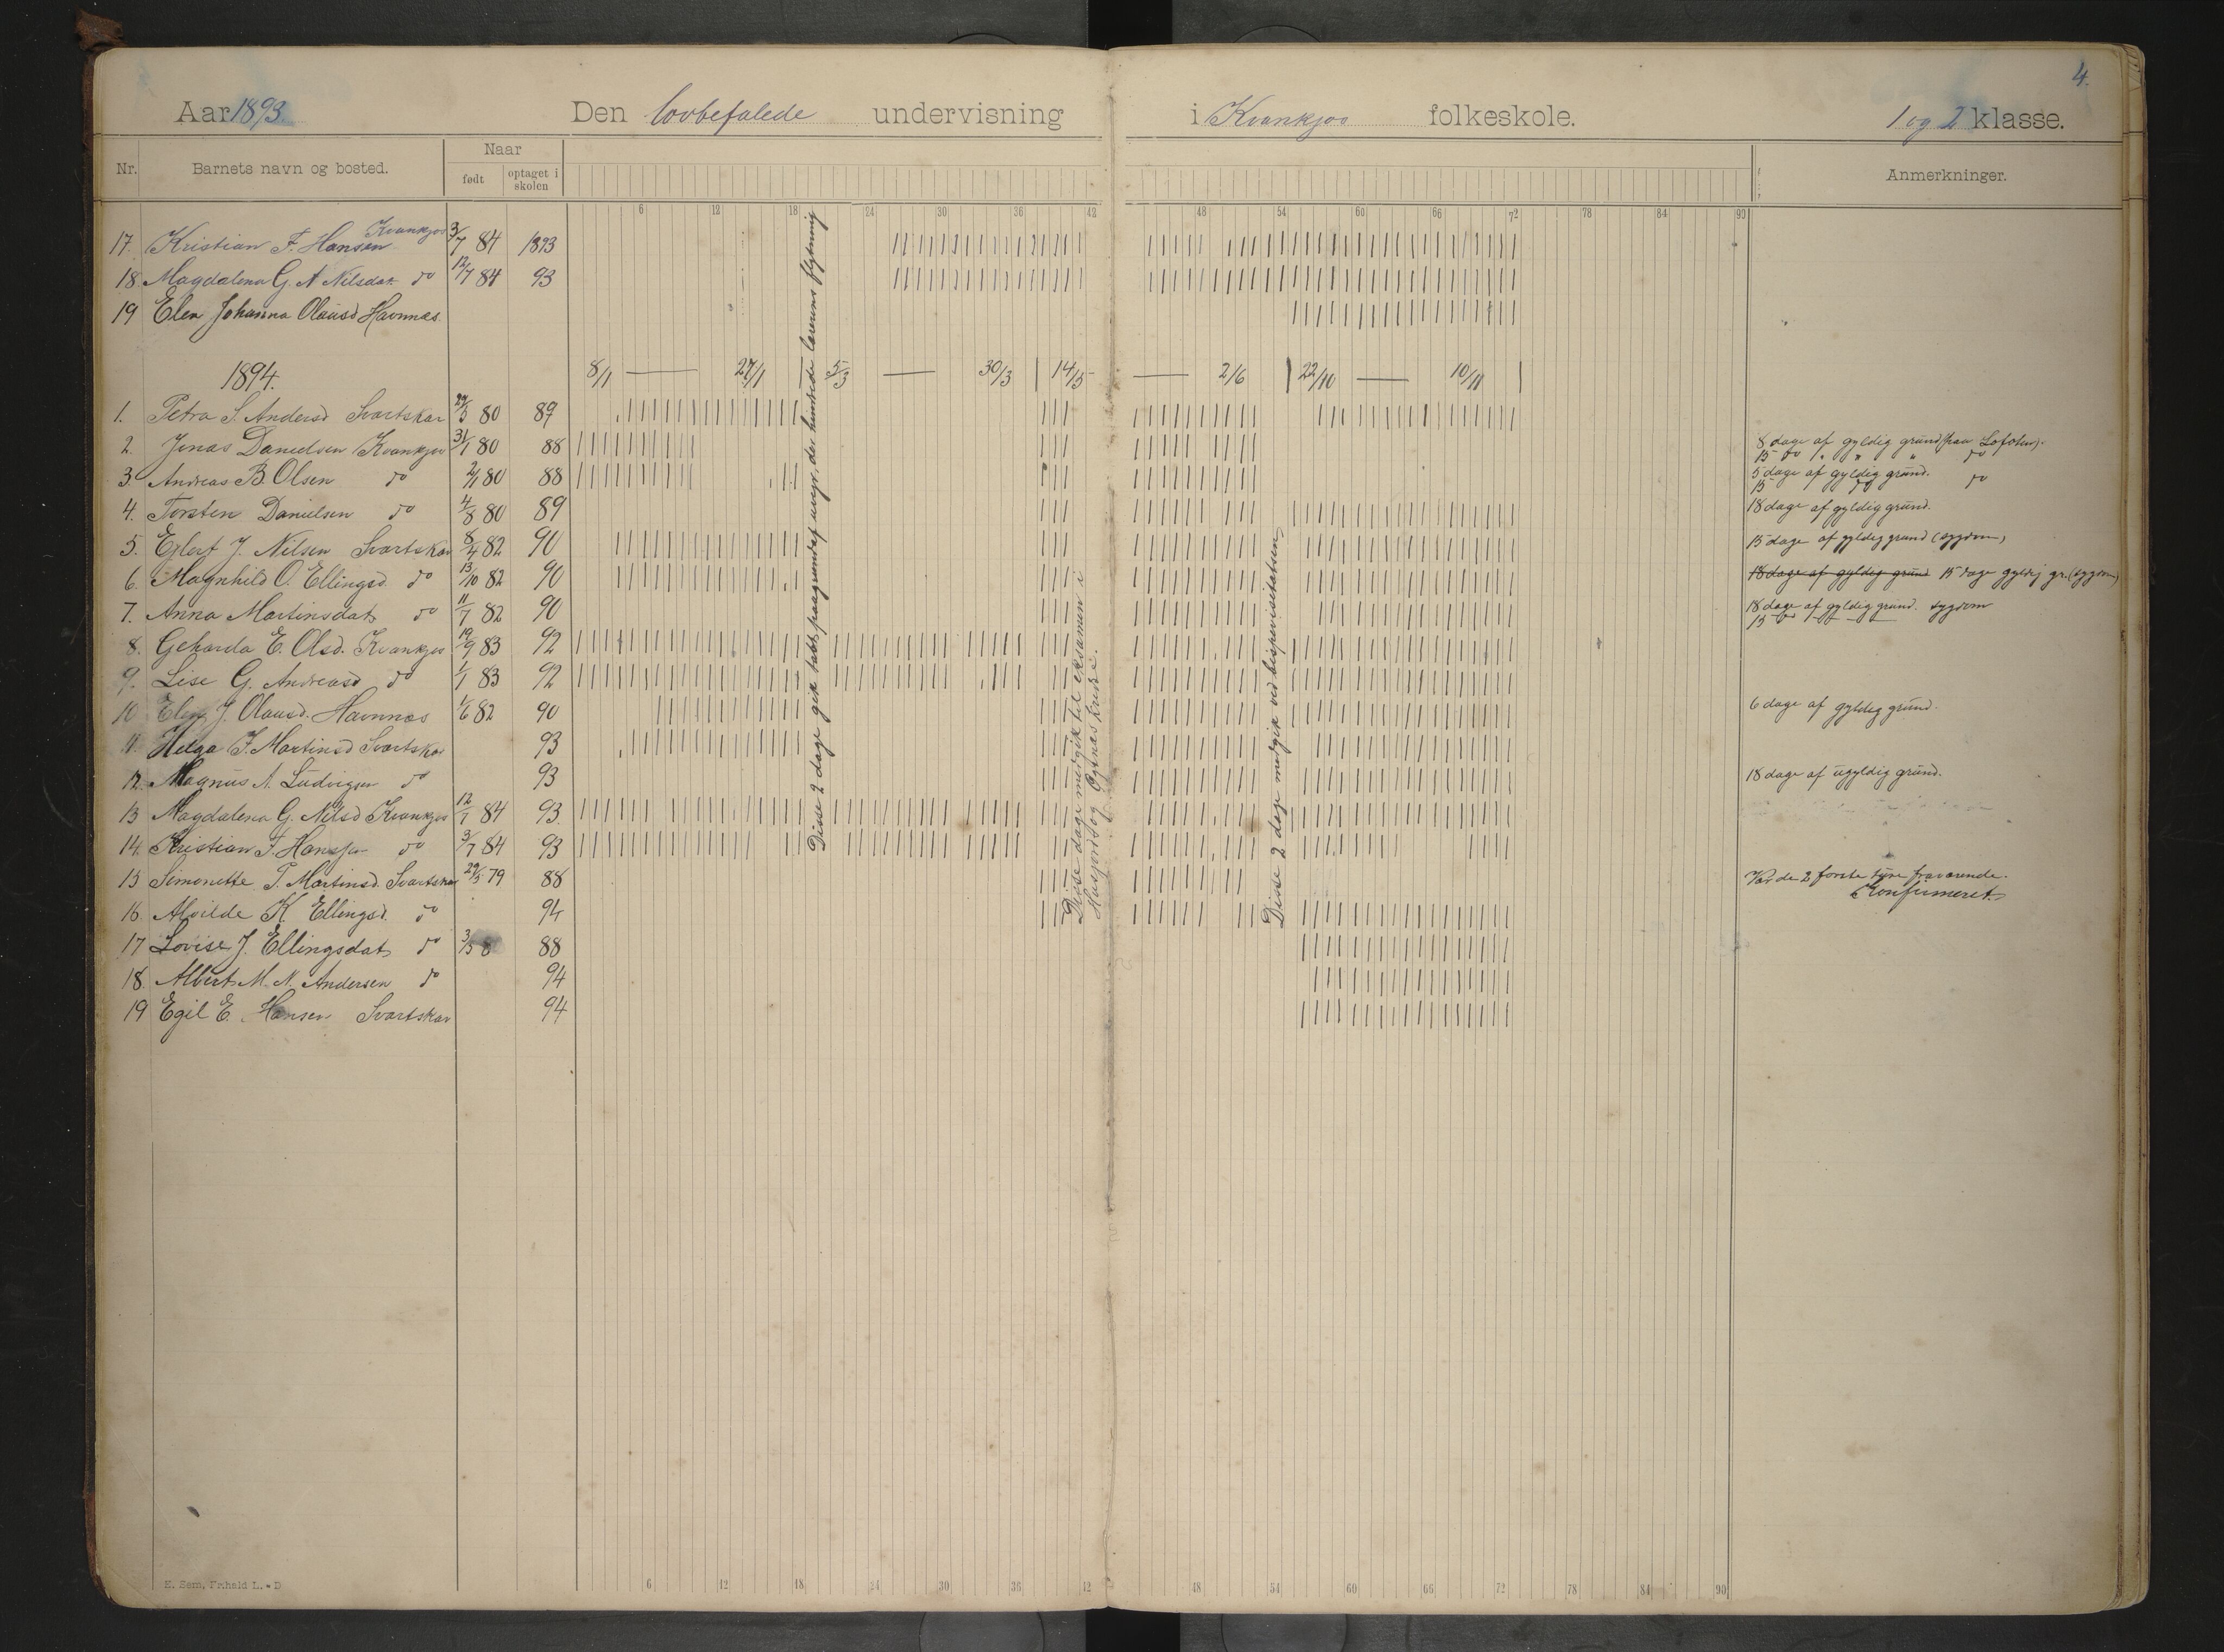 4.
Aar 1893. Den lovbefalede undervisning i Kvankjos folkeskole. 1 og 2 klasse.
Nr. Barnets navn og bosted. Naar født optaget i skolen Anmerkninger.
6 12 18 24 30 36 42 48 54 60 66 72 78 84 90
17. Kristian F. Hansen Kvankjos 3/7 84 1893
18. Magdalena G. A Nilsdat do 12/7 84 93
19 Elen Johanna Olausd Havnnæs
1894. 8/1 — 27/1 5/3 — 30/3 14/5 — 2/6 22/10 — 10/11
1. Petra S. Andersd Svartskar 80 89
2. Jonas Danielsen Kvankjos 31/1 80 88 8 dage af gyldig grund (paa Lofoten).
15 do " " " do
3. Andreas B. Olsen do 2/1 80 88 5 dage af gyldig grund.
15 do do
4. Torsten Danielsen do 4/8 80 89 18 dage af gyldig grund.
5. Eglert J. Nilsen Svartskar 8/4 82 90 15 dage af gyldig grund (sygdom)
6. Magnhild O. Ellingsd. do 13/10 82 90 18 dage af gyldig grund 15 dage gyldig gr. (sygdom)
7. Anna Martinsdat do 11/7 82 90 18 dage af gyldig grund. sygdom
15
8. Geharda E. Olsd. Kvankjos 19/9 83 92
9. Lise G. Andreasd do 1/1 83 92
10 Elen J. Olausd. Havnnæs 1/6 82 90 6 dage af gyldig grund.
11. Helga J. Martinsd Svartskar 93
12. Magnus A. Ludvigsen do 93 18 dage af ugyldig grund.
13 Magdalena G. Nilsd Kvankjos 12/7 84 93.
14. Kristian F. Hansen do 3/7 84 93
15 Simonette P. Martinsd. Svartskar 29/5 79 88 Var de 2 første uger fraværende.
Konfirmeret
16. Alvilde K. Ellingsd. do 94
17 Lovise J. Ellingsdat do 3/5 8 88
18. Albert M. N. Andersen do 94
19 Egil E. Hansen Svartskar 94
Disse 2 dage gik tabt paagrundaf uveir, der hindrede lærerens flytning
Disse dage medgik til eksamen i
Husfjord og Øgsnæs kreds.
Disse 2 dage medgik ved bispevisitatsen
E. Sem, Fr.hald L. - D
6 12 18 24 30 36 42 48 54 60 66 72 78 84 90